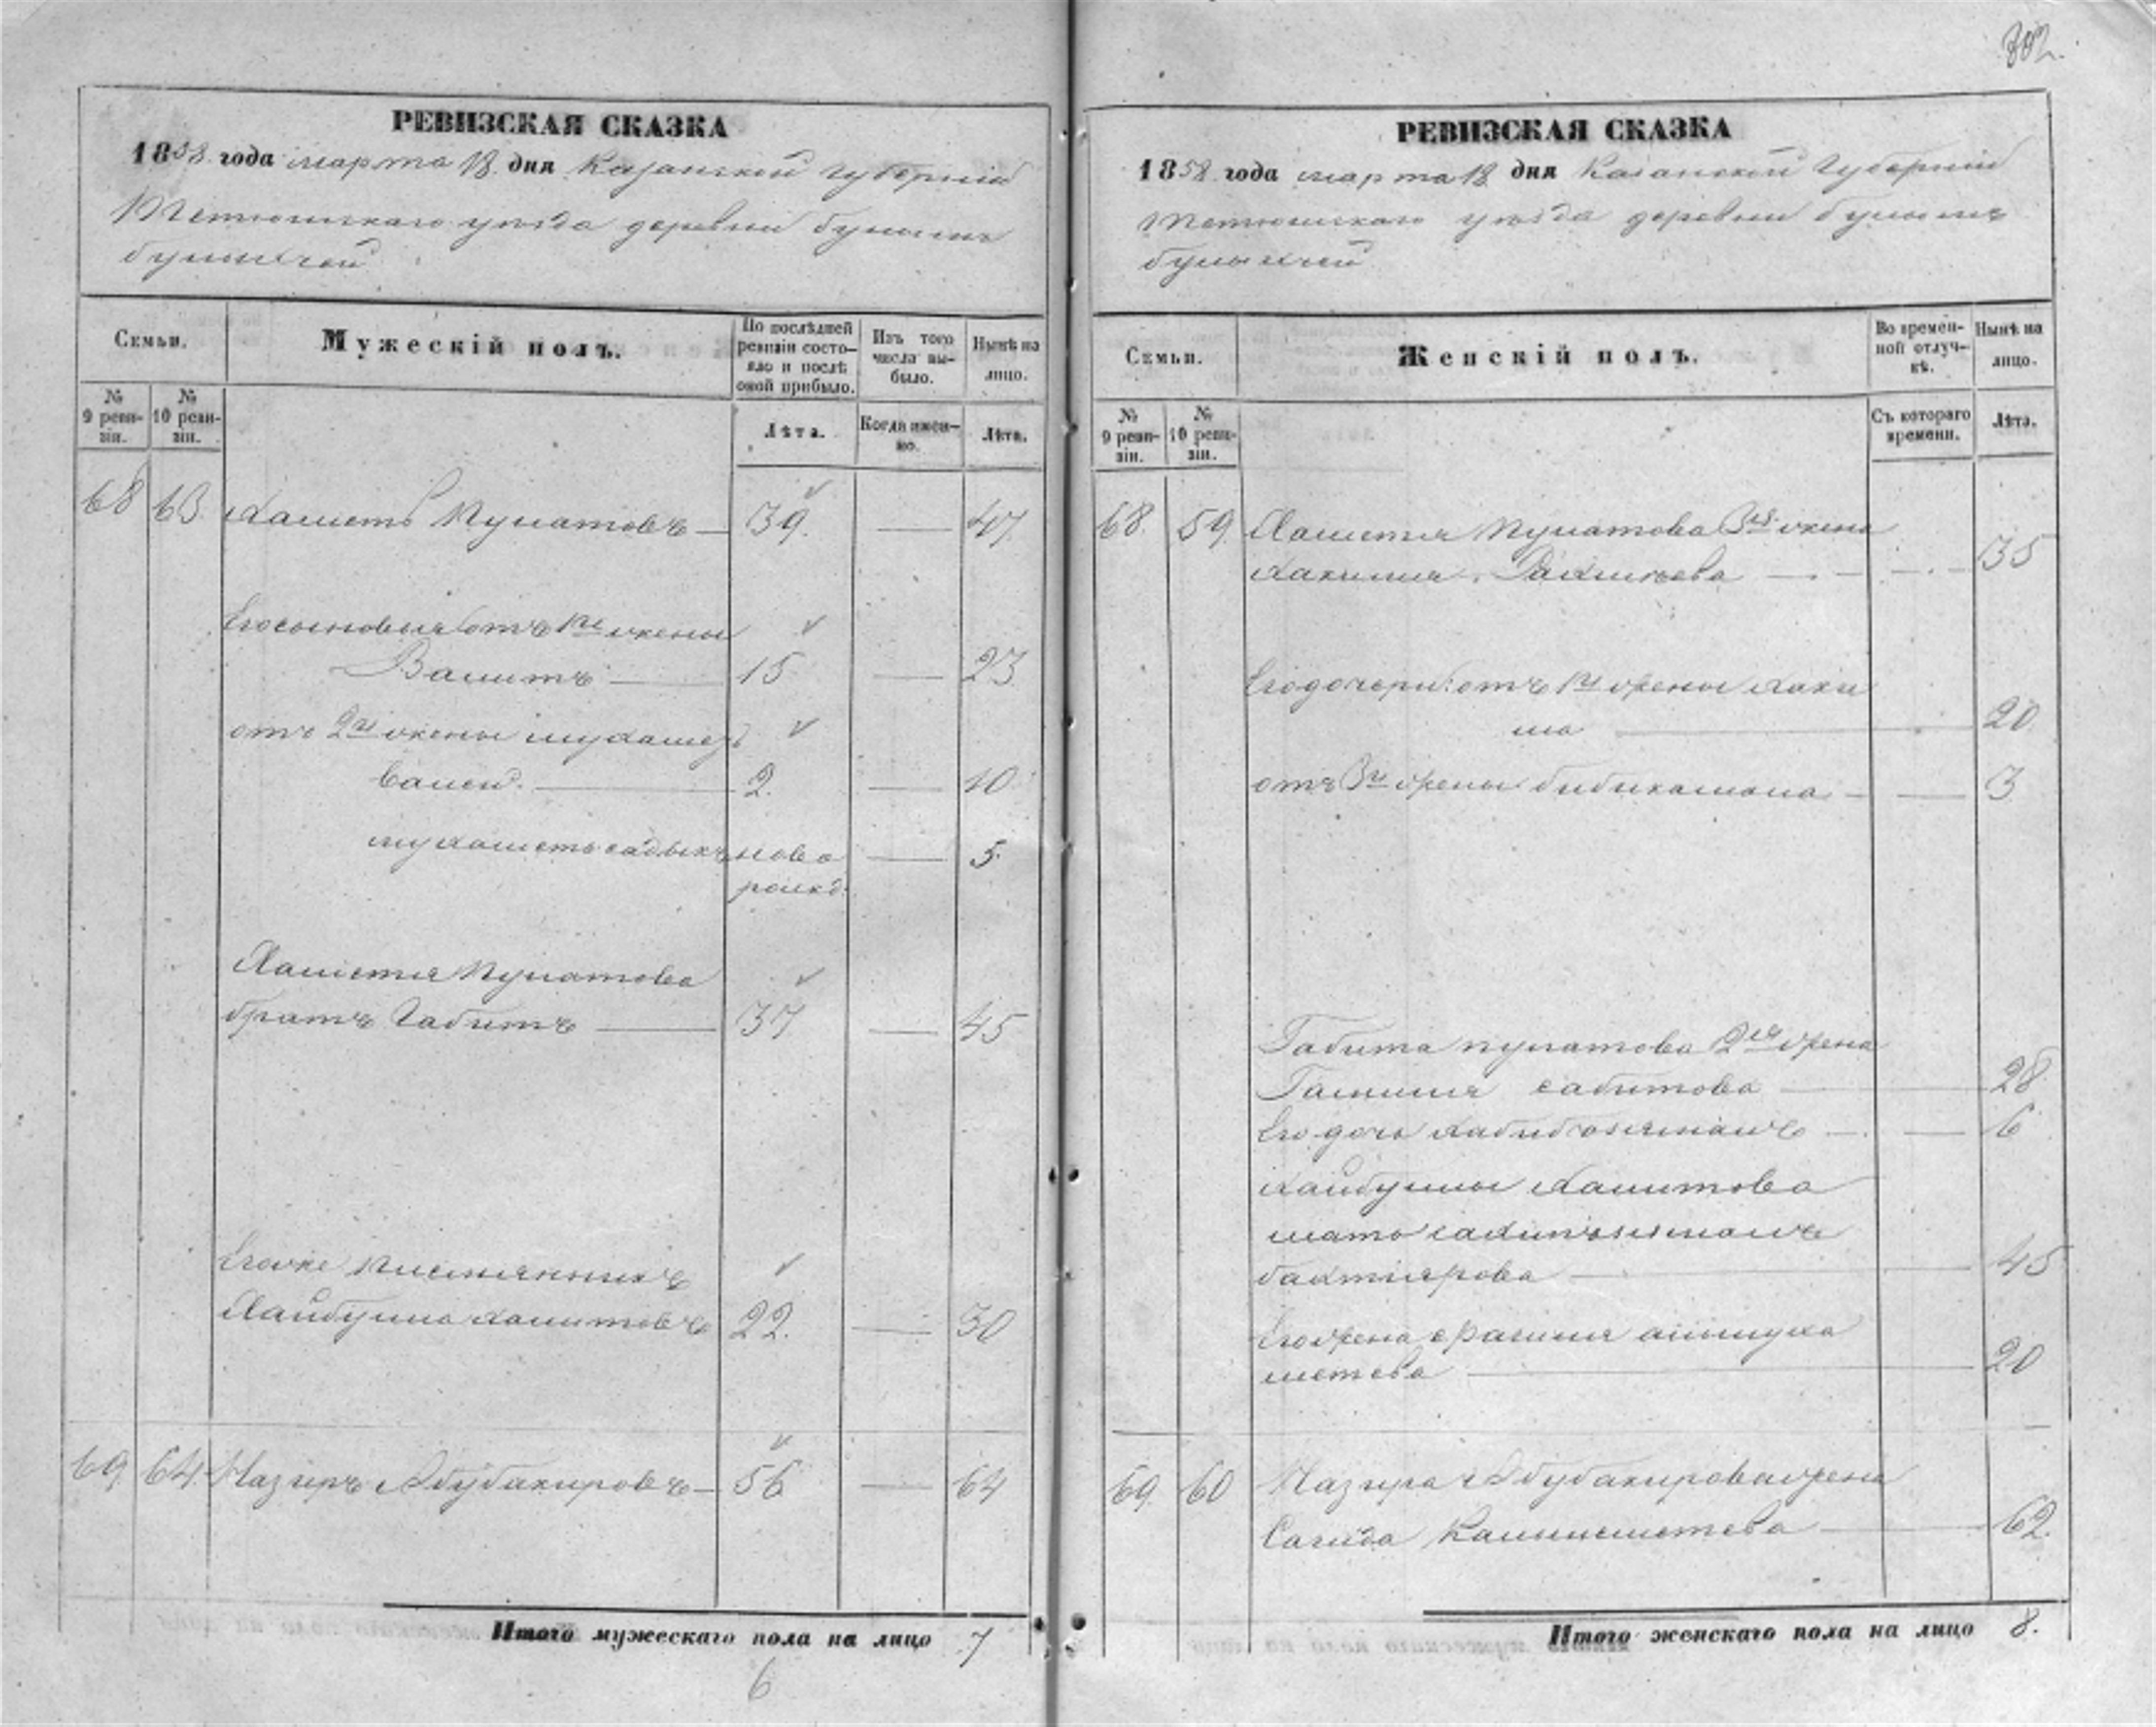 302.
РЕВИЗСКАЯ СКАЗКА
1858 года марта 18 дня Казанской Губернии
Тетюшскаго уѣзда деревни
Семьи.
Мужескій полъ.
По послѣдней ревизіи состояло и послѣ оной прибыло.
Изъ того числа выбыло.
Нынѣ на лицо.
№ 9 ревизіи.
№ 10 ревизіи.
Лѣта.
Когда именно.
Лѣта.
68 63 Хаметъ Пулатовъ — 39. — 47
Его сыновья отъ 1й жены
Валитъ — 15 — 23
отъ 2й жены мухамед
вали — 2. — 10
мухаметь садыкъ ново — 5.
рожд.
Хаметя Пулатова
братъ Габитъ — 37 — 45
Его же племянникъ
Хайбулла Хамитовъ 22. — 30
69 64 Назиръ Абубакировъ — 56 — 64
Итого мужескаго пола на лицо 7
6
РЕВИЗСКАЯ СКАЗКА
1858 года марта 18 дня Казанской Губернии
Тетюшскаго уѣзда деревни
Семьи.
Женскій полъ.
Во временной отлучкѣ.
Нынѣ на лицо.
№ 9 ревизіи.
№ 10 ревизіи.
Съ котораго времени.
Лѣта.
68. 59. Хаметя Пулатова 3я жена
— 35
Его дочери: отъ 1й жены Хаки
ма — 20
отъ 3й жены бибикамала — 3
Габита пулатова 2я жена
сабитова — 28
Его дочь — 6
Хайбуллы Хамитова
мать
бахтиярова — 45
Его жена
метева — 20
69. 60 Назира Абубакирова жена
Сагида — 62.
Итого женскаго пола на лицо 8.